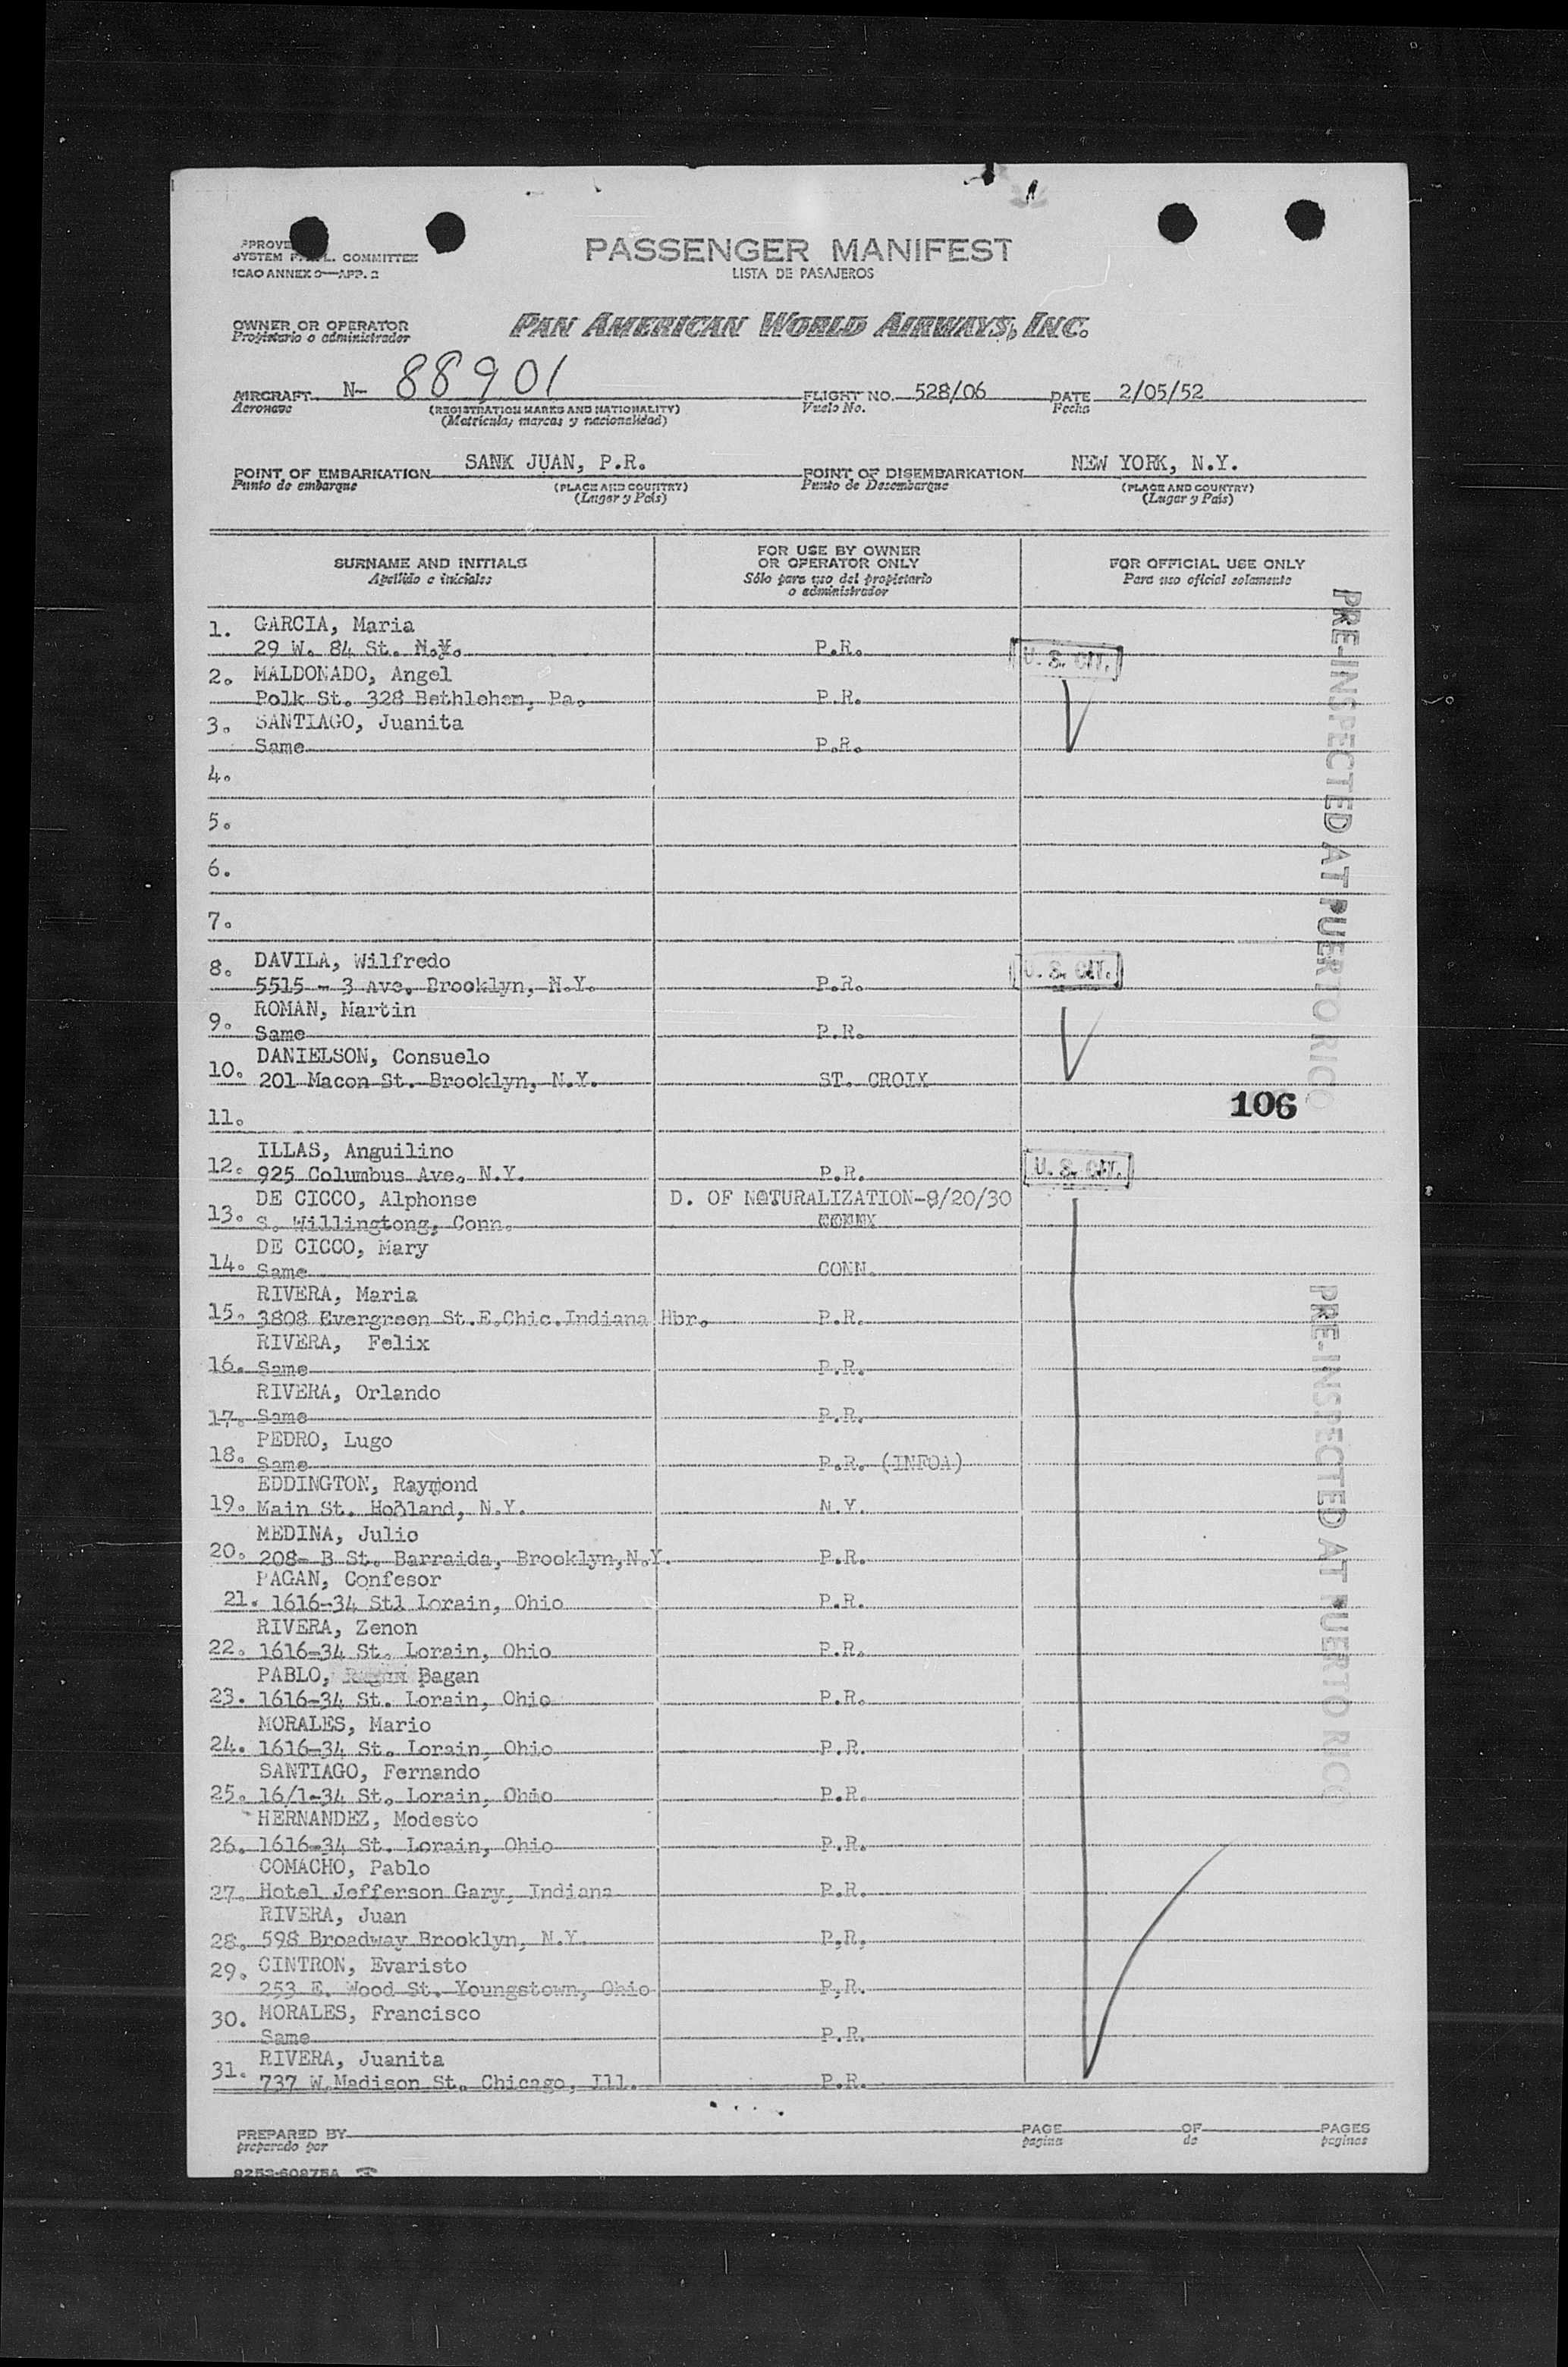 PASSENGER MANIFEST
LISTA DE PASAJEROS
SYSTEM COMMITTEE
ICAO ANNEX 9—APP. 2
OWNER OR OPERATOR
Propietario o administrador
PAN AMERICAN WORLD AIRWAYS, INC.
AIRCRAFT N- 88901 FLIGHT NO. 528/06 DATE 2/05/52
Aeronave (REGISTRATION MARKS AND NATIONALITY) Vuelo No. Fecha
(Matricula, marcas y nacionalidad)
POINT OF EMBARKATION SANK JUAN, P.R. POINT OF DISEMBARKATION NEW YORK, N.Y.
Punto de embarque (PLACE AND COUNTRY) Punto de Desembarque (PLACE AND COUNTRY)
(Lugar y País) (Lugar y País)
SURNAME AND INITIALS FOR USE BY OWNER OR OPERATOR ONLY FOR OFFICIAL USE ONLY
Apellido e iniciales Sólo para uso del propietario o administrador Para uso oficial solamente
1. GARCIA, Maria
29 W. 84 St. N.Y. P.R. U. S. CIT.
2. MALDONADO, Angel
Polk St. 328 Bethlehem, Pa. P.R.
3. SANTIAGO, Juanita
Same P.R.
4.
5.
6.
7.
8. DAVILA, Wilfredo
5515 - 3 Ave. Brooklyn, N.Y. P.R. U. S. CIT.
9. ROMAN, Martin
Same P.R.
10. DANIELSON, Consuelo
201 Macon St. Brooklyn, N.Y. ST. CROIX
106
11.
12. ILLAS, Anguilino
925 Columbus Ave. N.Y. P.R. U. S. CIT.
13. DE CICCO, Alphonse D. OF NATURALIZATION-9/20/30
S. Willingtong, Conn.
14. DE CICCO, Mary
Same CONN.
15. RIVERA, Maria
3808 Evergreen St.E.Chic.Indiana Hbr. P.R.
16. RIVERA, Felix
Same P.R.
17. RIVERA, Orlando
Same P.R.
18. PEDRO, Lugo
Same P.R. (INFOA)
19. EDDINGTON, Raymond
Main St. Hohland, N.Y. N.Y.
20. MEDINA, Julio
208- B St. Barraida, Brooklyn,N.Y. P.R.
21. PAGAN, Confesor
1616-34 Stl Lorain, Ohio P.R.
22. RIVERA, Zenon
1616-34 St. Lorain, Ohio P.R.
23. PABLO, Pagan
1616-34 St. Lorain, Ohio P.R.
24. MORALES, Mario
1616-34 St. Lorain, Ohio P.R.
25. SANTIAGO, Fernando
16/1-34 St. Lorain, Ohio P.R.
26. HERNANDEZ, Modesto
1616-34 St. Lorain, Ohio P.R.
27. COMACHO, Pablo
Hotel Jefferson Gary, Indiana P.R.
28. RIVERA, Juan
598 Broadway Brooklyn, N.Y. P,R,
29. CINTRON, Evaristo
253 E. Wood St. Youngstown, Ohio P,R.
30. MORALES, Francisco
Same P.R.
31. RIVERA, Juanita
737 W.Madison St. Chicago, Ill. P.R.
PRE-INSPECTED AT PUERTO RICO
PRE-INSPECTED AT PUERTO RICO
PREPARED BY PAGE OF PAGES
preparado por pagina de paginas